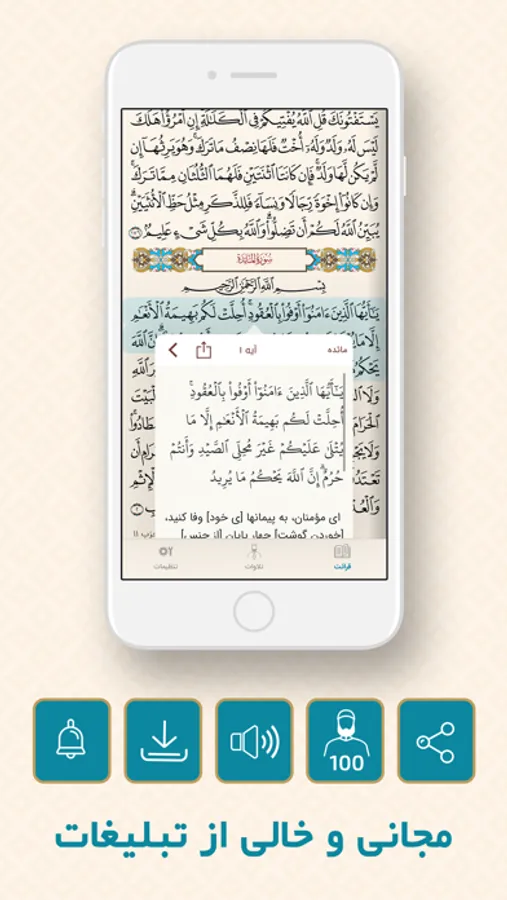 يَسْتَفْتُونَكَ قُلِ ٱللَّهُ يُفْتِيكُمْ فِي ٱلْكَلَٰلَةِ إِنِ ٱمْرُؤٌا۟ هَلَكَ
لَيْسَ لَهُۥ وَلَدٌ وَلَهُۥٓ أُخْتٌ فَلَهَا نِصْفُ مَا تَرَكَ وَهُوَ يَرِثُهَآ إِن
لَّمْ يَكُن لَّهَا وَلَدٌ فَإِن كَانَتَا ٱثْنَتَيْنِ فَلَهُمَا ٱلثُّلُثَانِ مِمَّا تَرَكَ
وَإِن كَانُوٓا۟ إِخْوَةً رِّجَالًا وَنِسَآءً فَلِلذَّكَرِ مِثْلُ حَظِّ ٱلْأُنثَيَيْنِ
يُبَيِّنُ ٱللَّهُ لَكُمْ أَن تَضِلُّوا۟ وَٱللَّهُ بِكُلِّ شَىْءٍ عَلِيمٌ ١٧٦
سُورَةُ المَائِدَة
بِسْمِ ٱللَّهِ ٱلرَّحْمَٰنِ ٱلرَّحِيمِ
يَٰٓأَيُّهَا ٱلَّذِينَ ءَامَنُوٓا۟ أَوْفُوا۟ بِٱلْعُقُودِ أُحِلَّتْ لَكُم بَهِيمَةُ ٱلْأَنْعَٰمِ
مائده آیه ۱
يَٰٓأَيُّهَا ٱلَّذِينَ ءَامَنُوٓا۟ أَوْفُوا۟ بِٱلْعُقُودِۚ
أُحِلَّتْ لَكُم بَهِيمَةُ ٱلْأَنْعَٰمِ إِلَّا مَا
يُتْلَىٰ عَلَيْكُمْ غَيْرَ مُحِلِّى ٱلصَّيْدِ وَأَنتُمْ
حُرُمٌۗ إِنَّ ٱللَّهَ يَحْكُمُ مَا يُرِيدُ
ای مؤمنان، به پیمانها [ی خود] وفا کنید،
[خوردن گوشت] چهار پایان [از جنس]
قرائت تلاوات تنظیمات
100
مجانی و خالی از تبلیغات